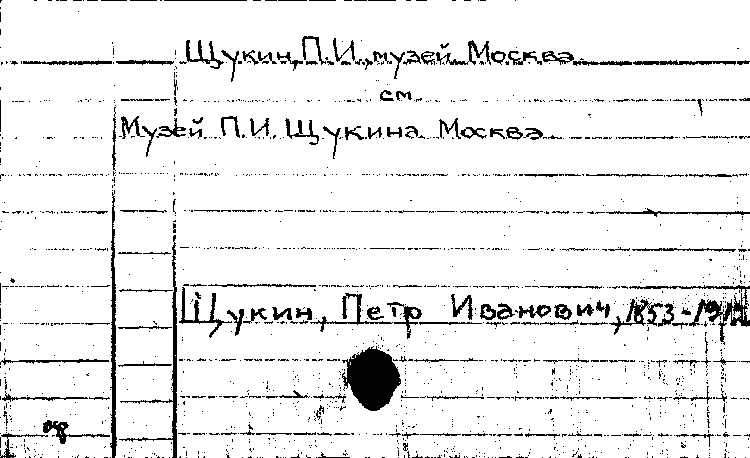 Щукин, П.И., музей. Москва
см.
Музей П.И. Щукина. Москва
Щукин, Петр Иванович, 1853-1912